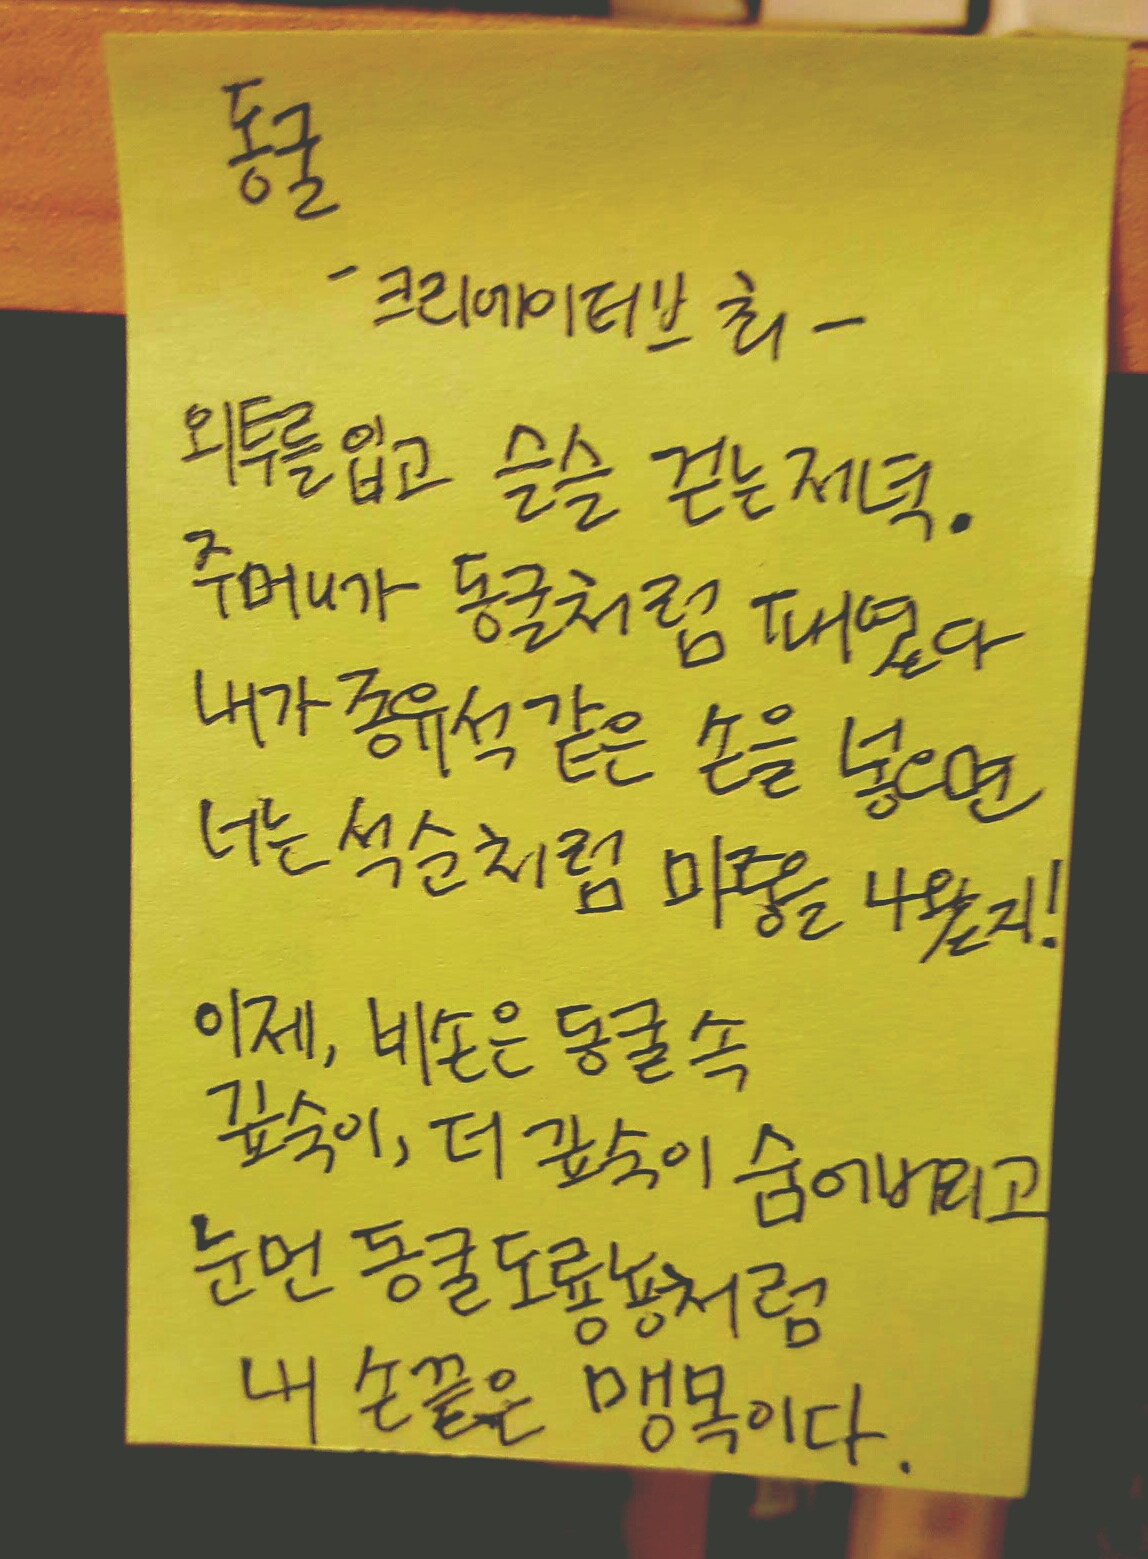 동굴
- 크리에이터브 최 -
외투를 입고 슬슬 걷는 저녁.
주머니가 동굴처럼 패였다
내가 종유석 같은 손을 넣으면
너는 석순처럼 마중을 나왔지!
이제, 네 손은 동굴 속
깊숙이, 더 깊숙이 숨어버리고
눈먼 동굴도룡뇽처럼
내 손끝은 맹목이다.